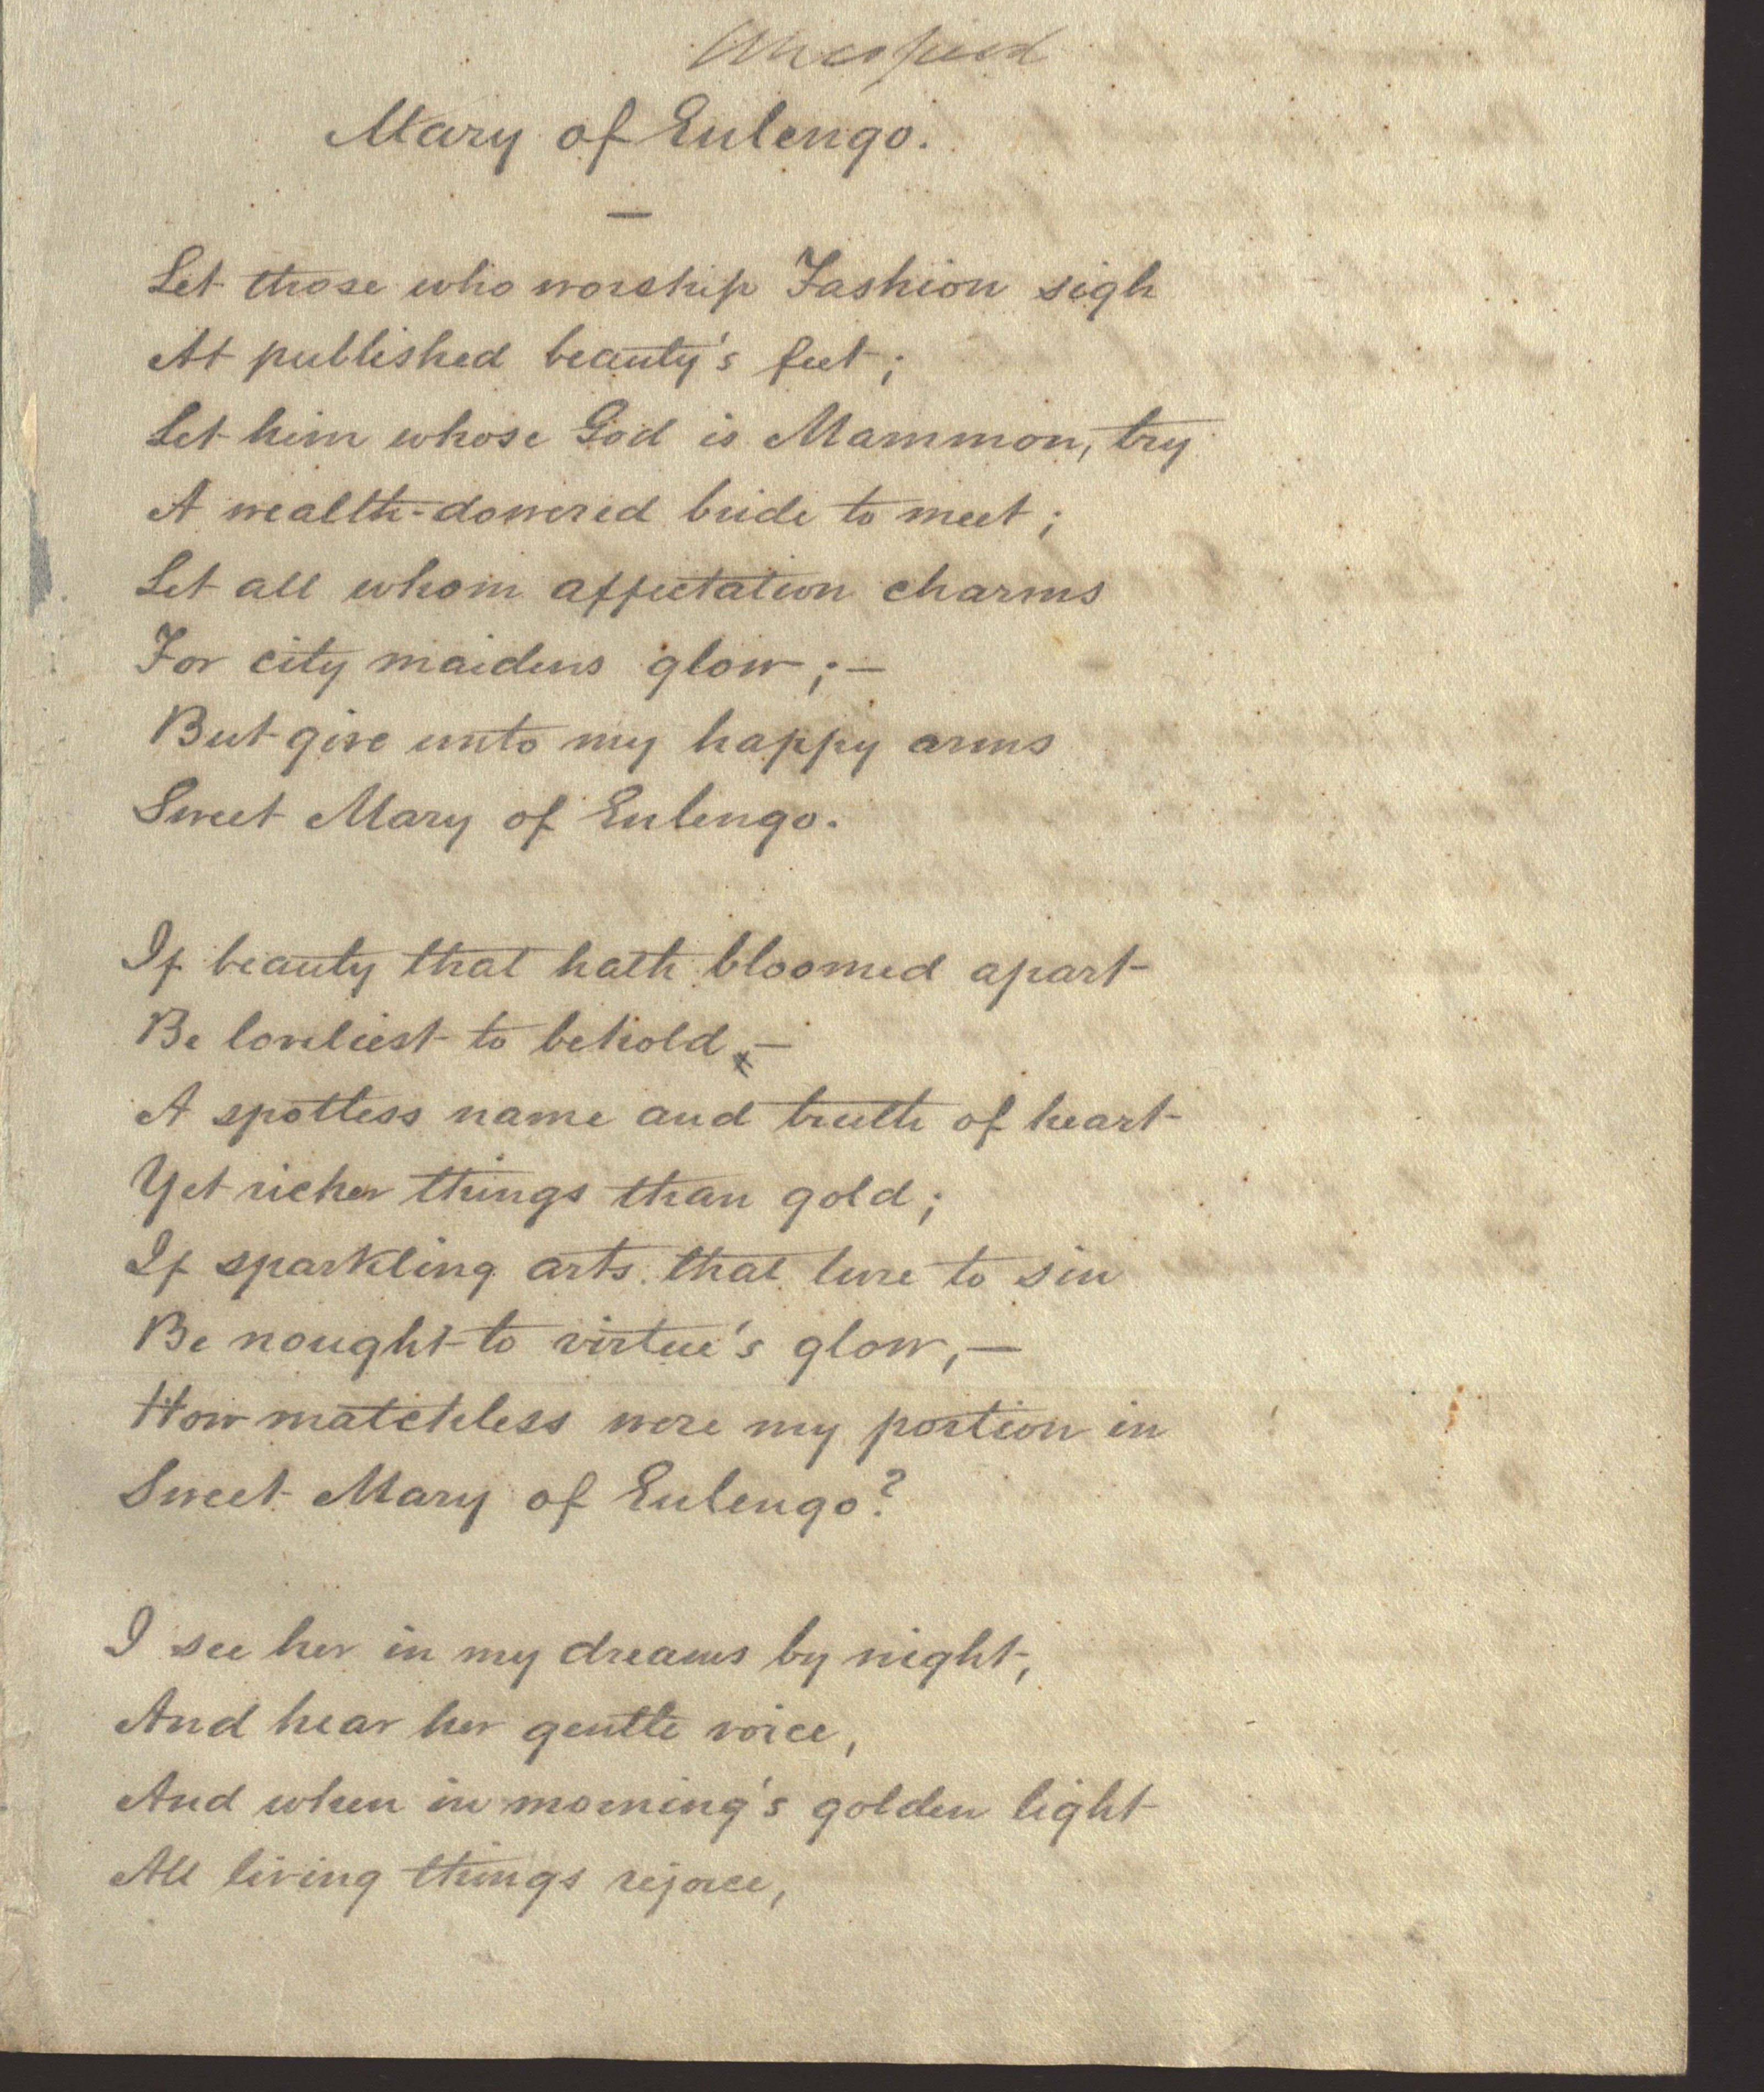 Mary of Eulengo.
—
Let those who worship Fashion sigh
At published beauty's feet;
Let him whose God is Mammon, try
A wealth-dowered bride to meet;
Let all whom affectation charms
For city maidens glow;—
But give unto my happy arms
Sweet Mary of Eulengo.
If beauty that hath bloomed apart
Be loveliest to behold,—
A spotless name and truth of heart
Yet richer things than gold;
If sparkling arts that lure to sin
Be nought to virtue's glow,—
How matchless were my portion in
Sweet Mary of Eulengo?
I see her in my dreams by night,
And hear her gentle voice,
And when in morning's golden light
All living things rejoice,